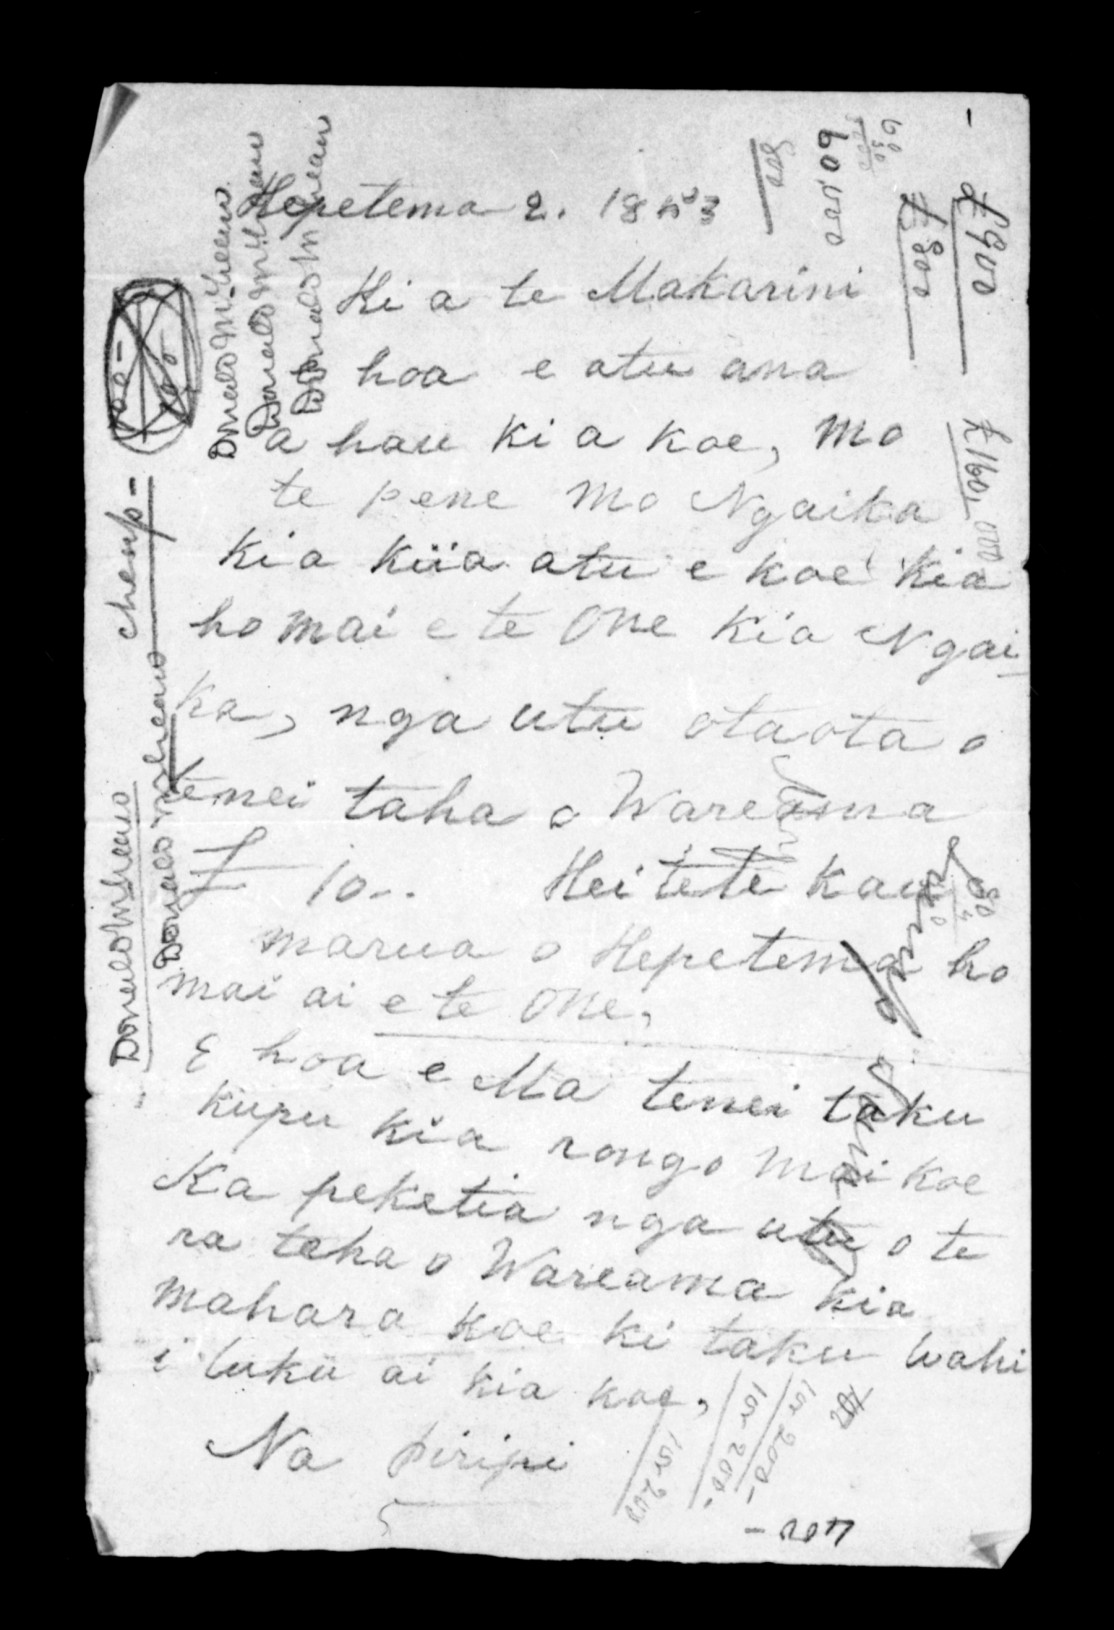 Hepetema 2. 1853
Ki a te Makarini
E hoa e atu ana
a hau ki a koe, mo
te pene mo Ngaika
kia kiia atu e koe kia
ho mai e te One kia Ngai-
ka, nga utu otaota o
tenei taha o Wareama
£ 10-. Hei te te kau
marua o Hepetema ho
mai ai e te One,
E hoa e Ma tenei taku
kupu kia rongo mai koe
Ka peketia nga utu o te
ra taha o Wareama kia
mahara koe ki taku wahi
i tuku ai kia koe,
Na piripi
Donald McLean
Donald McLean
Donald McLean
Donald McLean
Donald McLean
cheup-
800
60,000
£800
£900
£160,000
200
200-
200-